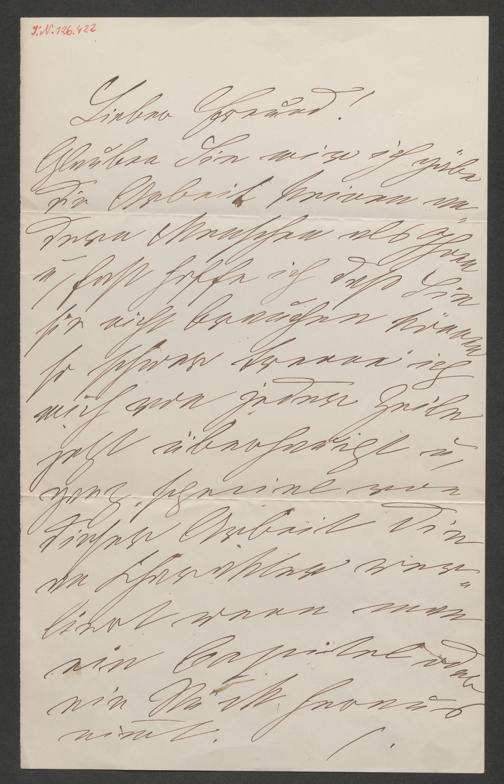 I.N. 126.422
Lieber Freund!
Glauben Sie mir ich gäbe
die Arbeit keinem an
deren Menschen als Ihnen
u, fast hoffe ich daß Sie
sie nicht brauchen können
so schwer trenne ich
mich von jeder Zeile
jetzt überhaupt u,
ganz speciel von
dieser Arbeit die
an Charakter ver-
liert wenn man
ein Capitel oder
ein Stück heraus
nimt. /.